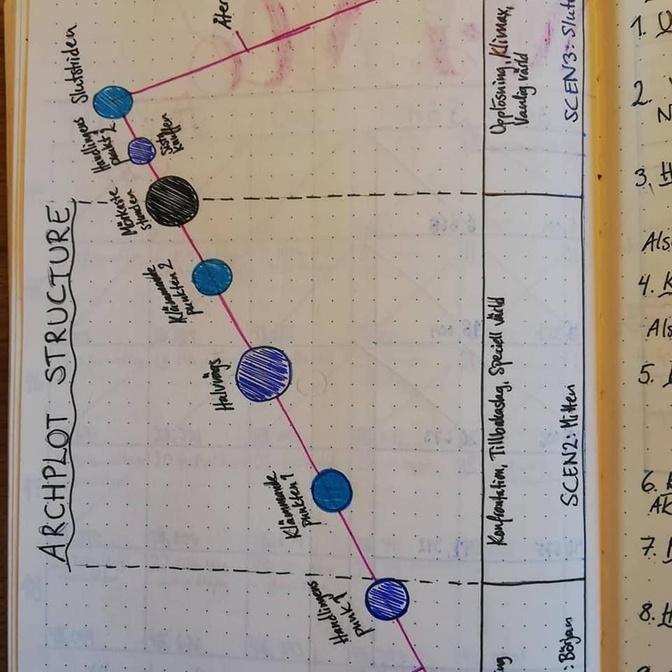 ARCHPLOT STRUCTURE
Handlingens
punk 1
Klämmande
punkten 1
Halvvägs
Klämmande
punkten 2
Mörkaste
stunden
Handlingens
punkt 2
Sista
Slutstriden
Åte
Konfrontation, Tillbakaslag, Speciell värld
Upplösning, Klimax,
Vanlig värld
ng
Början
SCEN2: Mitten
SCEN3: Slut
1.
2.
N
3. H
Als
4. K
Als
5.
6.
AK
7.
8. H